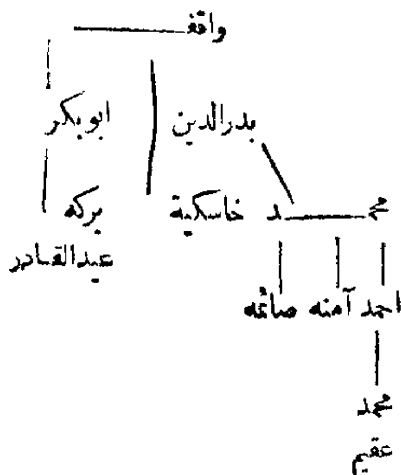 واقف
ابوبكر بدرالدين
بركه خاسكية محمد
عبدالقادر
احمد آمنه صائمه
محمد
عقيم